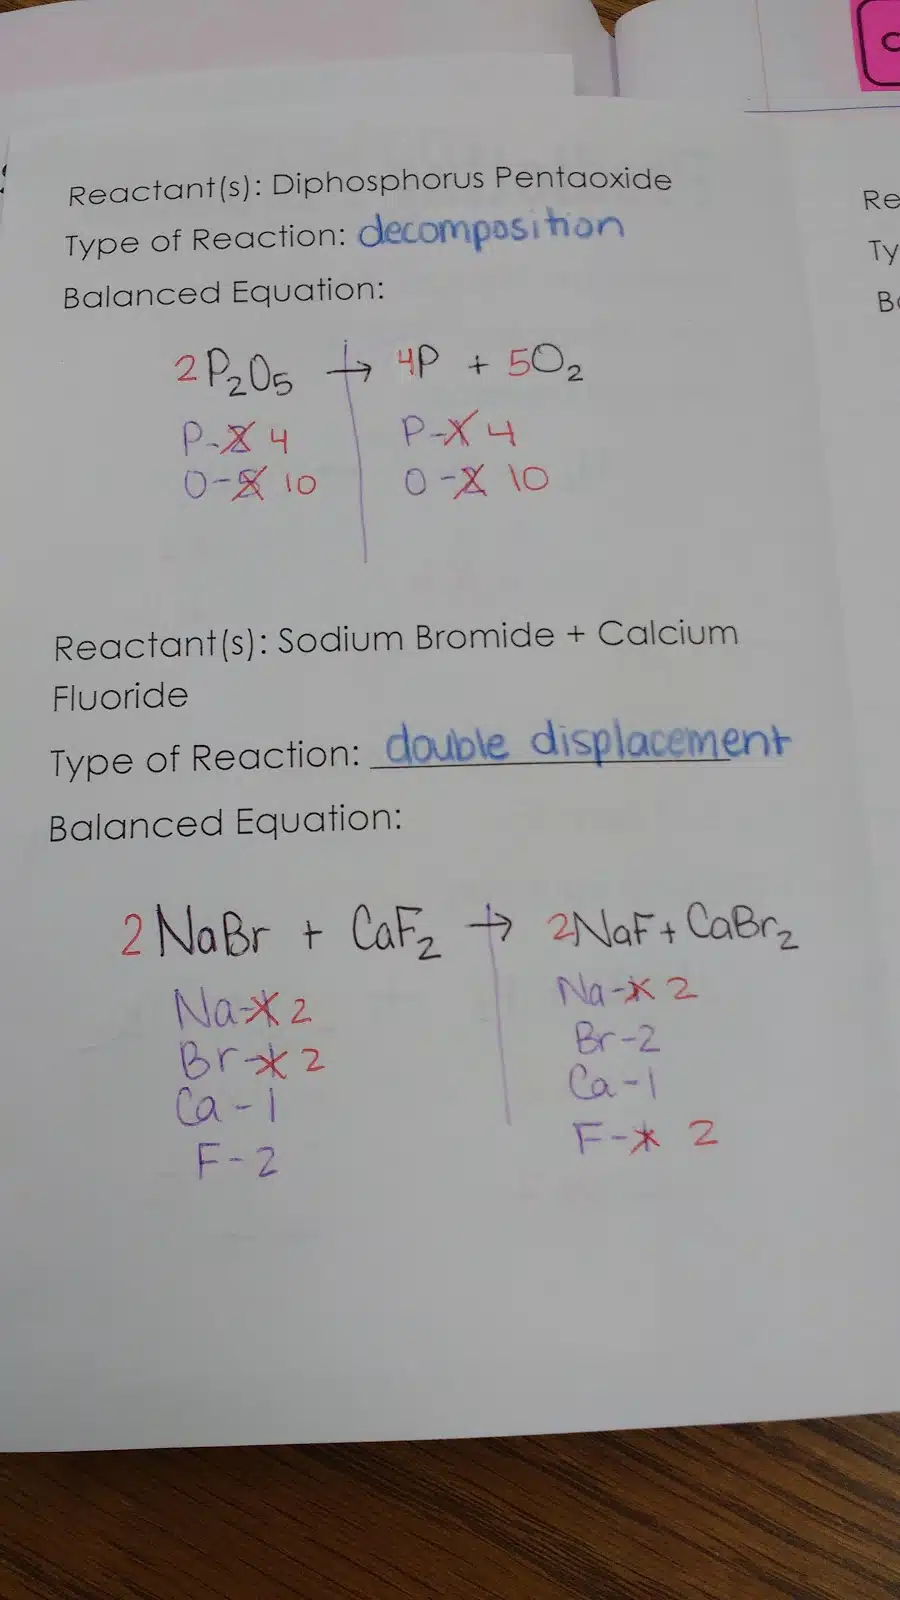 Reactant(s): Diphosphorus Pentaoxide
Type of Reaction: decomposition
Balanced Equation:
2P₂O₅ → 4P + 5O₂
P-2 4 P-1 4
O-5 10 O-2 10
Reactant(s): Sodium Bromide + Calcium
Fluoride
Type of Reaction: double displacement
Balanced Equation:
2NaBr + CaF₂ → 2NaF + CaBr₂
Na-1 2 Na-1 2
Br-1 2 Br-2
Ca-1 Ca-1
F-2 F-1 2
Re
Ty